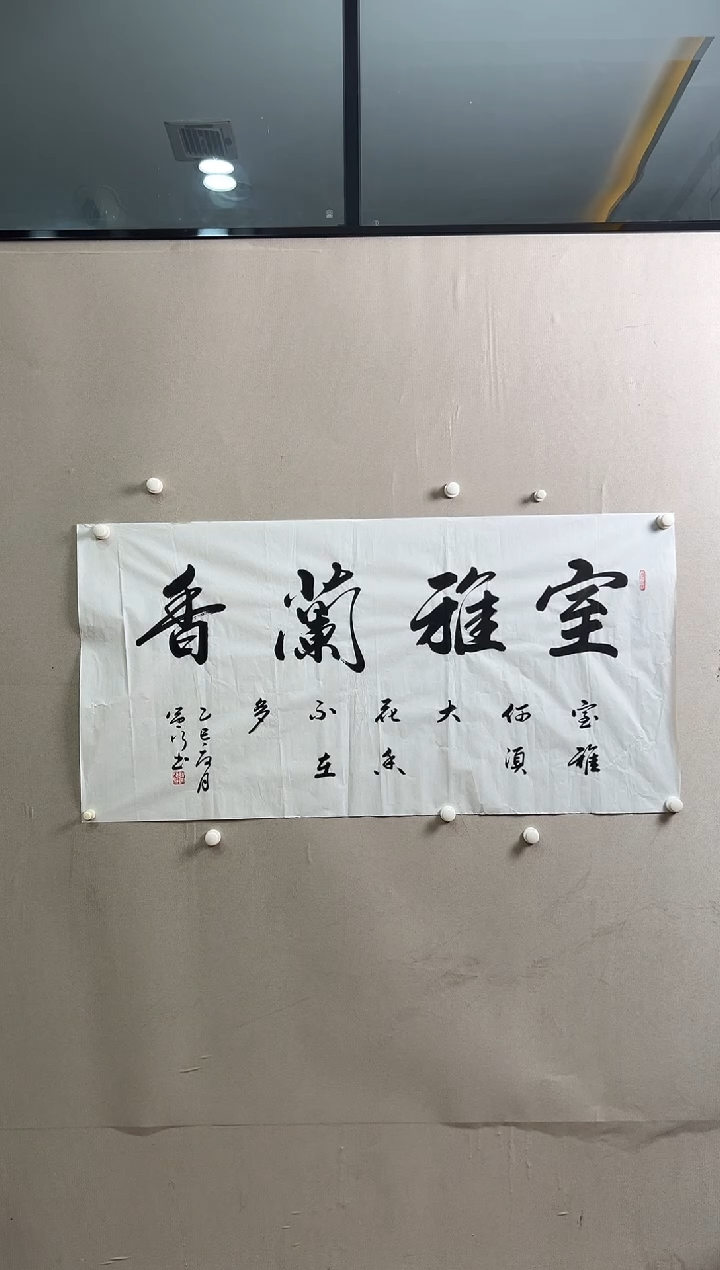 室雅蘭香
室雅
何須
大
花香
不在
多
乙巳
月
書